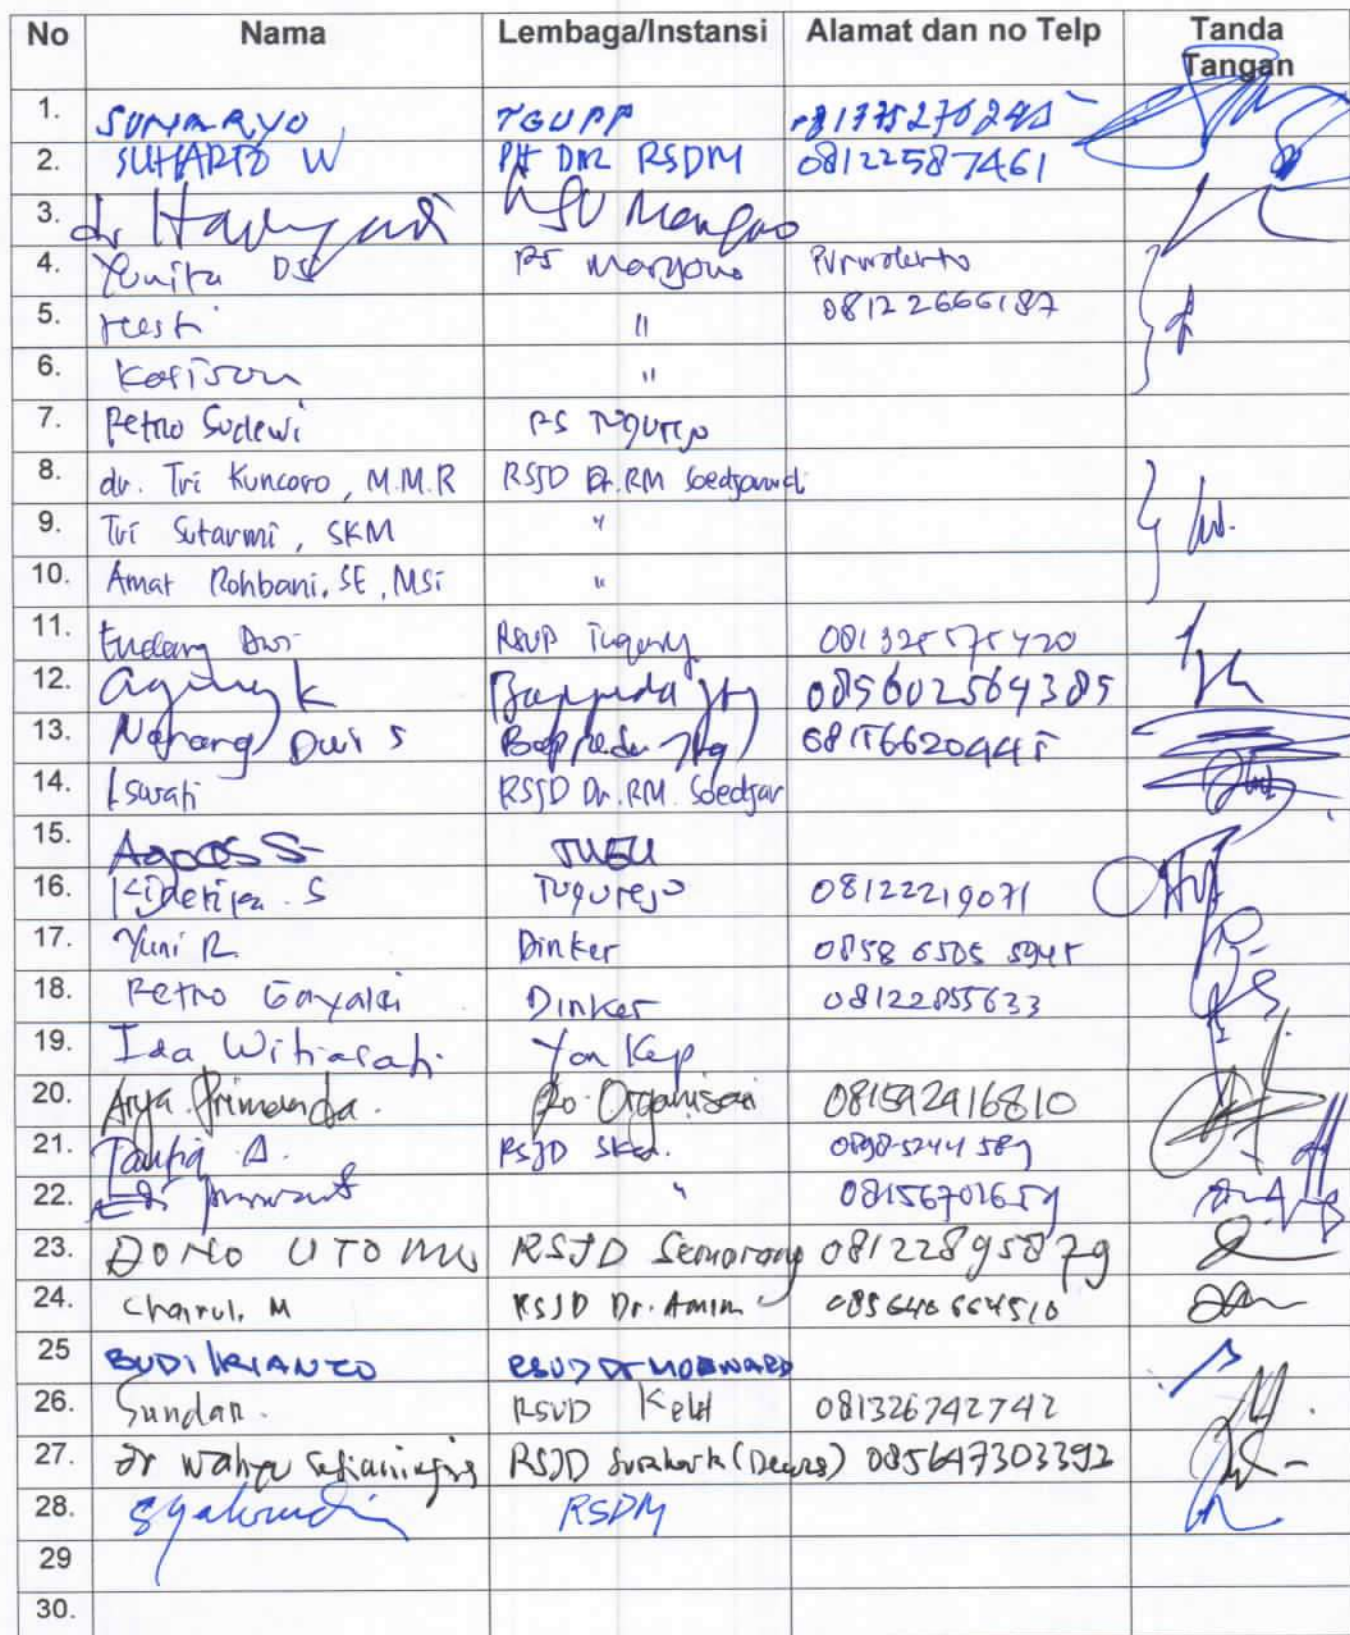 No Nama Lembaga/Instansi Alamat dan no Telp Tanda Tangan
1. SUNARYO TGUPP
2. SUHARTO W Plt DIR RSDM 08122587461
3. dr
4. Yunita DS RS Margono Purwokerto
5. Hesti " 08122666187
6. "
7. Retno Sudewi RS Tugurejo
8. dr. Tri Kuncoro, M.M.R RSJD Dr. RM Soedjarwadi
9. Tri Sutarmi, SKM "
10. Amat Rohbani, SE, MSi "
11. Endang Dwi RSUD Tugurejo 081325575420
12. Agung K Bappeda Jtg 085602564385
13. Nanang Dwi S Bappeda Jtg 08156620445
14. Iswati RSJD Dr. RM. Soedjar
15. Agoes S TUGU
16. S Tugurejo 08122219071
17. Yuni R. Dinkes 0858 6505 5945
18. Retno Dinkes 08122855633
19. Ida Witiasati Yan Kep
20. Arya Primanda. Ro. Organisasi 081592916810
21. Taufiq A. RSJD Ska. 0898-5244 589
22. Edi " 08156701659
23. DONO UTOMO RSJD Semarang 08122895879
24. Chairul. M RSJD Dr. Amin 085640664510
25 BUDI KRIANTO RSUD Dr MOEWARDI
26. Sundari. RSUD Kelet 081326742742
27. dr Wahyu Setianingsih RSJD Surakarta 085647303392
28. RSDM
29
30.